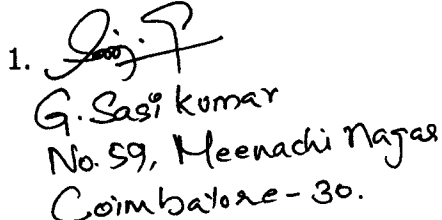 1.
G. Sasi kumar
No. 59, Meenachi Nagar
Coimbatore - 30.